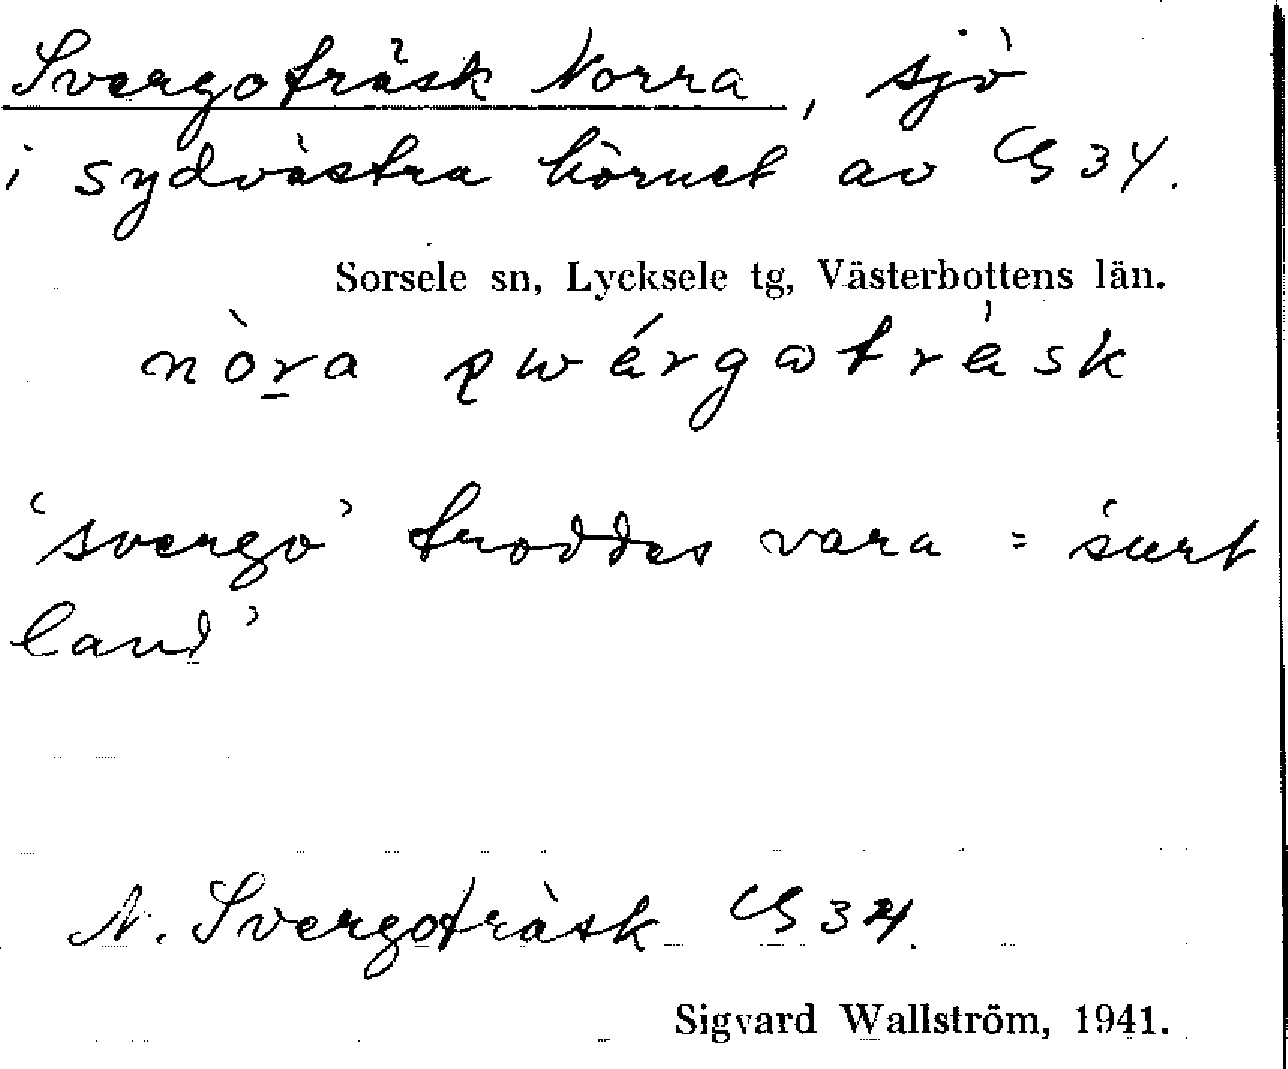 Svergoträsk Norra, sjö
i sydvästra hörnet av G 34.
Sorsele sn, Lycksele tg, Västerbottens län.
nòra
'svergo' troddes vara = 'surt
land'
N. Svergoträsk G 34.
Sigvard Wallström, 1941.